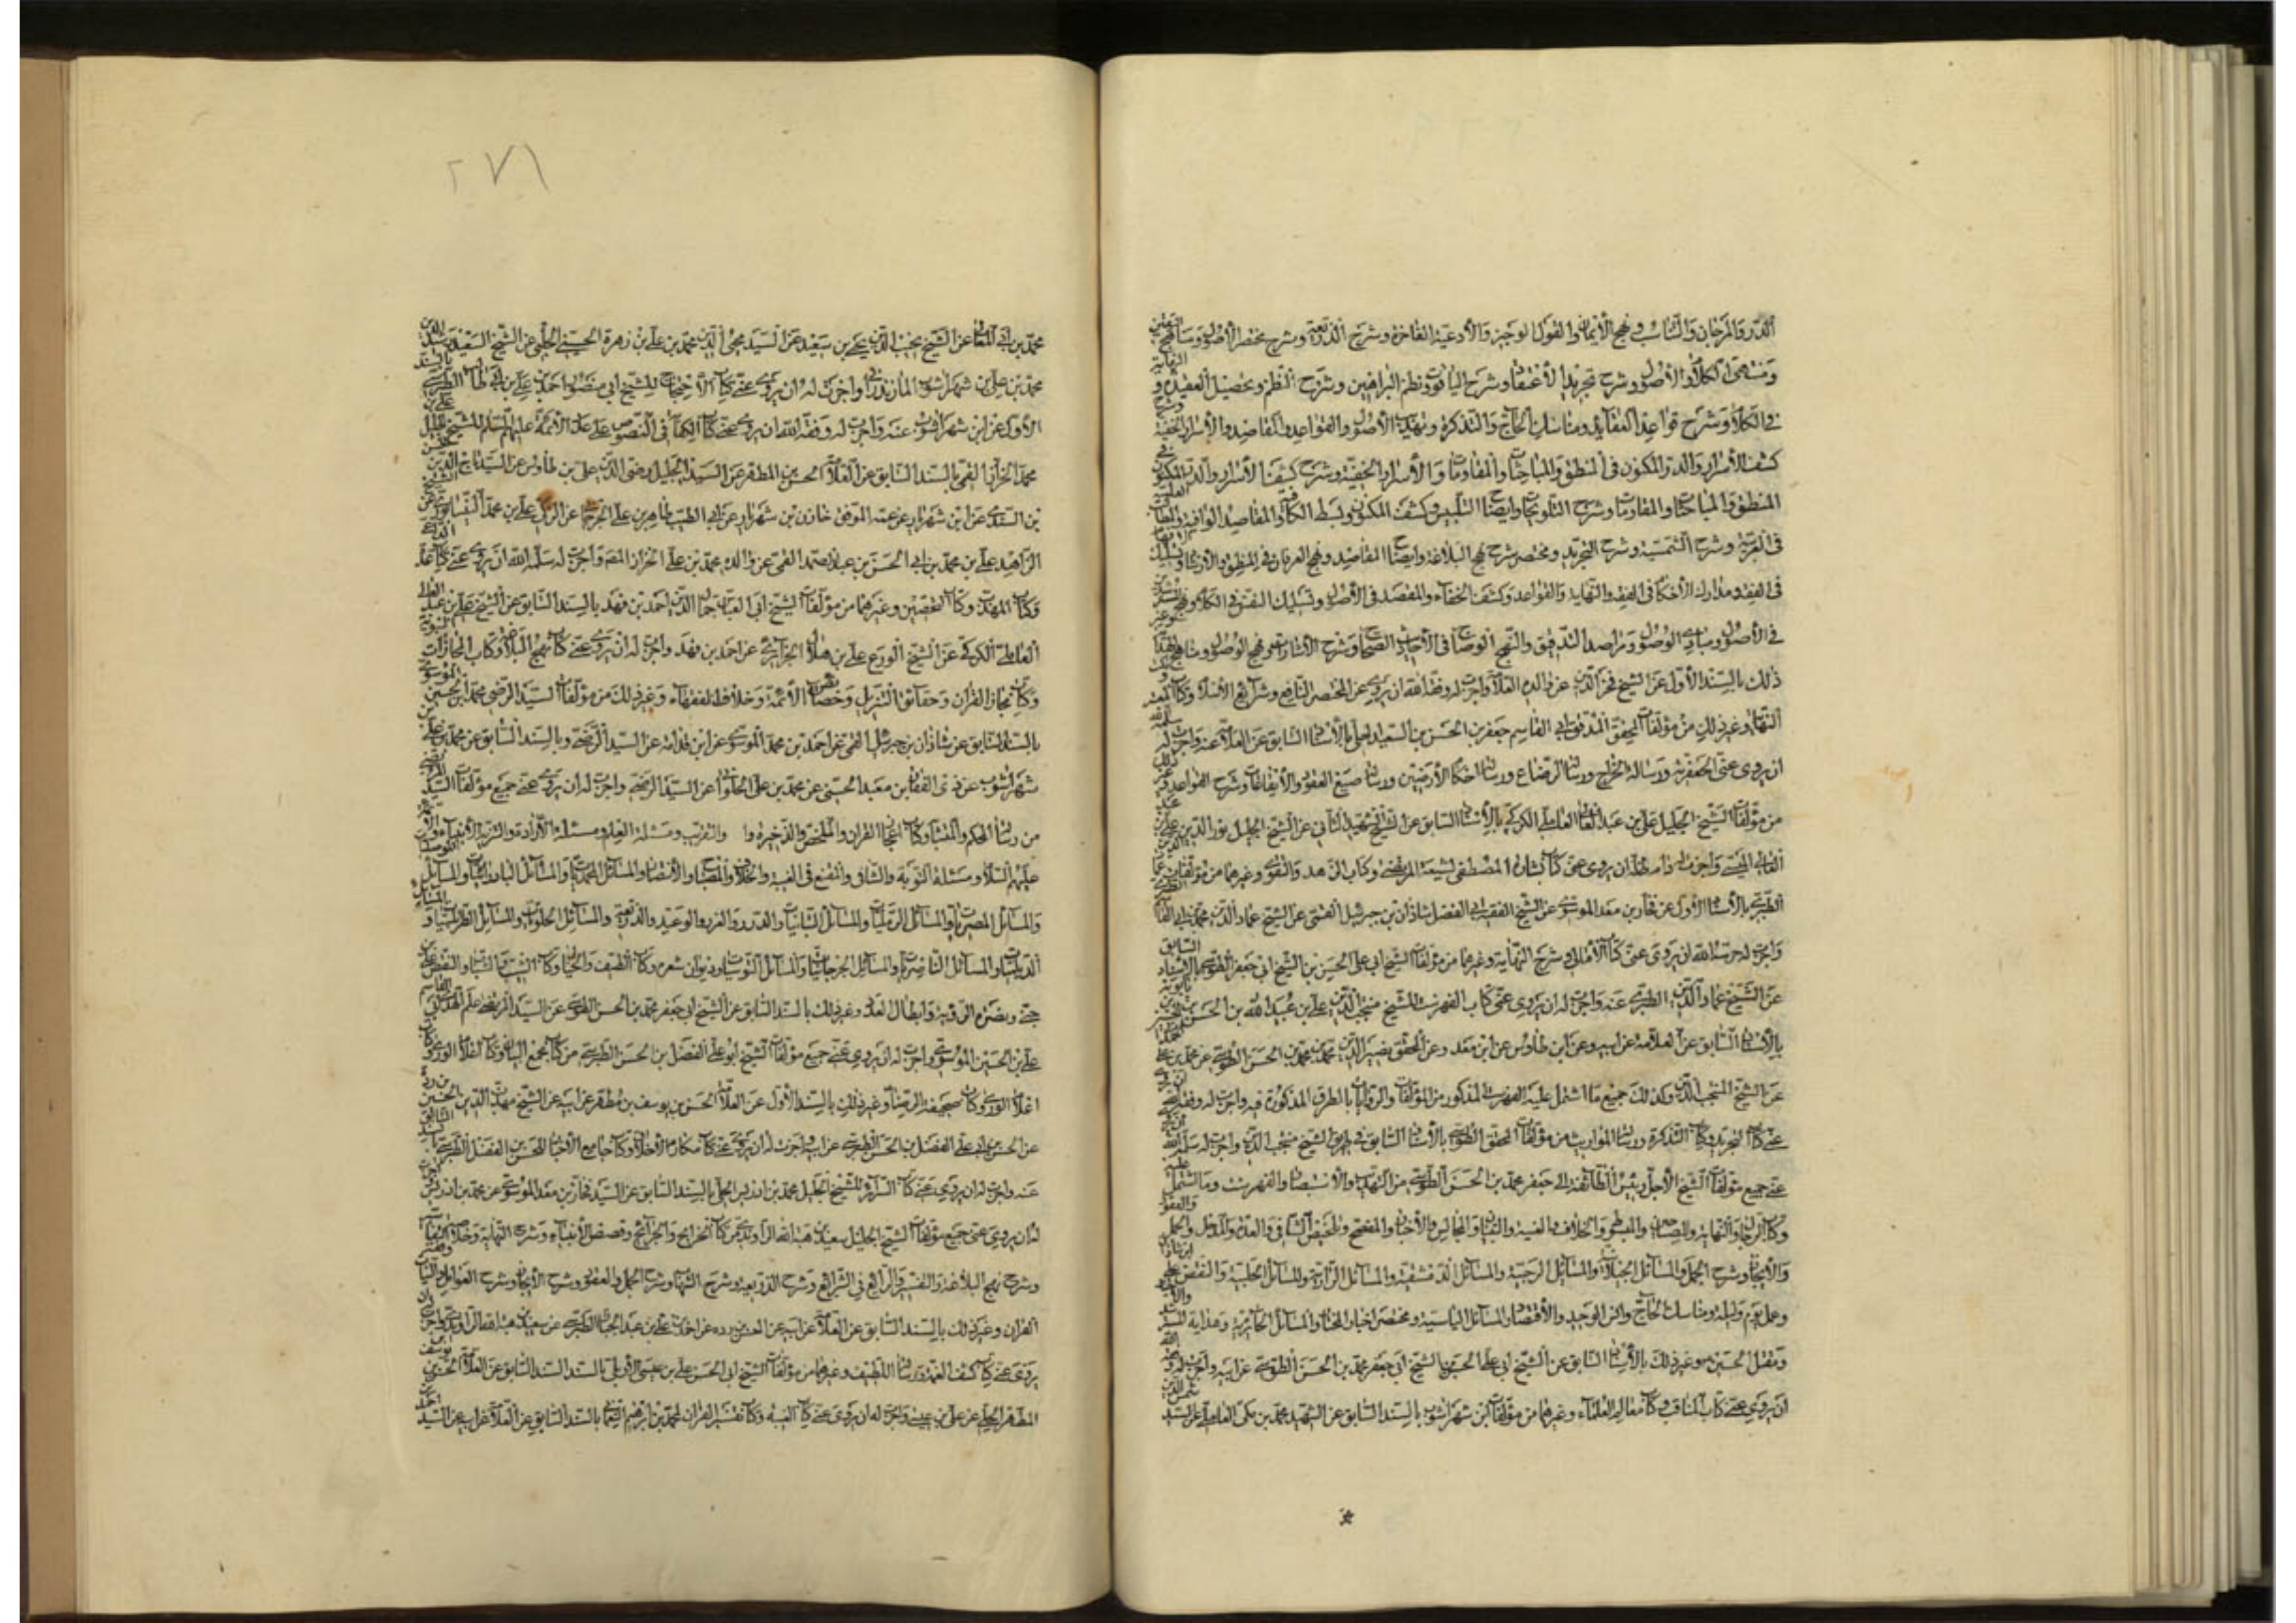 الدر والمرجان والتناسب ونهج الأيمان والقول الوجيز والأدعية الفاخرة وشرح الذريعة وشرح مختصر الأصول ومناهج اليقين
ومنتهى الكلام والأصول وشرح تجريد الاعتقاد وشرح الياقوت ونظم البراهين وشرح النظم وتحصيل العقيدة و
في الكلام وشرح قواعد العقايد ومناسك الحاج والتذكرة وتهذيب الأصول والقواعد والمقاصد والأسرار الخفية
كشف الأسرار والدر المكنون في المنطق والمباحثات والمقاومات والأسرار الخفية وشرح كشف الأسرار والدر المكنون في
المنطق والمباحثات والمقاومات وشرح التلويحات وايضاح التلبيس وكشف المكنون وبسط الكافية والمقاصد الوافية
في العربية وشرح الشمسية وشرح التجريد ومختصر شرح نهج البلاغة وايضاح المقاصد ونهج العرفان في المنطق والارشاد
في الفقه ومدارك الأحكام في الفقه والنهاية والقواعد وكشف الخفاء والمقصد في الأصول وتسليك النفس في الكلام ونهج
في الأصول ومبادي الوصول ومراصد التدقيق والنهج الوضاح في الأحاديث الصحاح وشرح الاشارات ونهج الوصول ومناهج
ذلك بالسند الأول عن الشيخ فخر الدين عن والده العلامة واجزت له وفقه الله ان يروي عني المختصر النافع وشرائع الأسلام وكتاب المعتبر
وغير ذلك من مؤلفات المحقق المدقق ابي القاسم جعفر بن الحسن بن السعيد الحلي بالأسناد السابق عن العلامة عنه واجزت له سلمه الله
ان يروي عني الجعفرية ورسالة الخراج ورسالة الرضاع ورسالة احكام الأرضين ورسالة صيغ العقود والأيقاعات وشرح القواعد وغير ذلك
من مؤلفات الشيخ الجليل علي بن عبد العالي العاملي الكركي بالأسناد السابق عن الشيخ الشهيد الثاني عن الشيخ الجليل نور الدين علي بن عبد
العالي الميسي واجزت له دام ظله ان يروي عني كتاب بشارة المصطفى لشيعة المرتضى وكتاب الزهد والتقوى وغيرهما من مؤلفات عماد الدين
الطبري بالأسناد الأول عن فخار بن معد الموسوي عن الشيخ الفقيه ابي الفضل شاذان بن جبرئيل القمي عن الشيخ عماد الدين محمد بن ابي القاسم الطبري
واجزت له حرسه الله ان يروي عني كتاب الأمالي وشرح النهاية وغيرهما من مؤلفات الشيخ ابي علي الحسن بن الشيخ ابي جعفر الطوسي بالأسناد السابق
عن الشيخ عماد الدين الطبري عنه واجزت له ان يروي عني كتاب الفهرست للشيخ منتجب الدين علي بن عبيد الله بن الحسن بن الحسين بن بابويه
بالأسناد السابق عن العلامة عن ابيه وعن ابن طاوس عن ابن معد وعن المحقق نصير الدين محمد بن محمد بن الحسن الطوسي عن محمد بن علي
عن الشيخ المنتجب الدين وكذلك جميع ما اشتمل عليه الفهرست المذكور من المؤلفات والروايات بالطرق المذكورة فيه واجزت له وفقه الله ان يروي
عني كتاب التجريد وكتاب التذكرة ورسالة المواريث من مؤلفات المحقق الطوسي بالأسناد السابق في طريق الشيخ منتجب الدين واجزت له سلمه الله ان يروي
عني جميع مؤلفات الشيخ الأجل رئيس الطائفة ابي جعفر محمد بن الحسن الطوسي من التهذيب والأستبصار والفهرست وما اشتمل عليه
وكتاب الرجال والنهاية والمصباح والمبسوط والخلاف والغيبة والتبيان والمجالس والأخبار والمفصح وتلخيص الشافي والعدة والمدخل والجمل والعقود
والأيجاز وشرح الجمل والمسائل الجنبلائية والمسائل الرجبية والمسائل الدمشقية والمسائل الرازية والمسائل الحلبية والنقض على ابن شاذان
وعمل يوم وليلة ومناسك الحاج وانس الوحيد والأقتصاد والمسائل الياسية ومختصر اخبار المختار والمسائل الحائرية وهداية المسترشد
ومقتل الحسين وغير ذلك بالأسناد السابق عن الشيخ ابي علي الحسن بن الشيخ ابي جعفر محمد بن الحسن الطوسي عن ابيه واجزت له وفقه الله
ان يروي عني كتاب المناقب وكتاب معالم العلماء وغيرهما من مؤلفات ابن شهراشوب بالسند السابق عن الشهيد محمد بن مكي العاملي عن السيد شمس الدين
٢٧١
محمد بن ابي المعالي عن الشيخ نجيب الدين يحيى بن سعيد عن السيد محيي الدين محمد بن علي بن زهرة الحسيني الحلبي عن الشيخ السعيد رشيد الدين
محمد بن علي بن شهراشوب المازندراني واجزت له ان يروي عني كتاب الأحتجاج للشيخ ابي منصور احمد بن علي بن ابي طالب الطبرسي بالسند
الأول عن ابن شهراشوب عنه واجزت له وفقه الله ان يروي عني كتاب الكفاية في النصوص على عدد الأئمة عليهم السلام للشيخ الجليل علي بن
محمد الخزاز القمي بالسند السابق عن العلامة الحسن بن المطهر عن السيد الجليل رضي الدين علي بن طاوس عن السيد تاج الدين حسن
بن السندي عن ابن شهريار عن عمه الموفق خازن بن شهريار عن ابي الطيب طاهر بن علي الجرجاني عن الزكي علي بن محمد النيسابوري عن الشيخ
الزاهد علي بن محمد بن ابي الحسن بن عبد الصمد القمي عن والده محمد بن علي الخزاز القمي واجزت له سلمه الله ان يروي عني كتاب عدة الداعي
وكتاب المهذب وكتاب التحصين وغيرهما من مؤلفات الشيخ ابي العباس جمال الدين احمد بن فهد بالسند السابق عن الشيخ علي بن عبد العالي
العاملي الكركي عن الشيخ الورع علي بن هلال الجزائري عن احمد بن فهد واجزت له ان يروي عني كتاب نهج البلاغة وكتاب المجازات النبوية
وكتاب مجاز القرآن وحقائق التنزيل وخصائص الأئمة وخلاف الفقهاء وغير ذلك من مؤلفات السيد الرضي محمد بن الحسين الموسوي
بالسند السابق عن شاذان بن جبرئيل القمي عن احمد بن محمد الموسوي عن ابن قدامة عن السيد الرضي وبالسند السابق عن محمد بن علي بن
شهراشوب عن ذي الفقار بن معبد الحسني عن محمد بن علي الحلواني عن السيد الرضي واجزت له ان يروي عني جميع مؤلفات السيد المرتضى
من رسالة المحكم والمتشابه وكتاب اعجاز القرآن والملخص والذخيرة و والتقريب ومسئلة العلم ومسئلة الأرادة والتنزيه الأنبياء والأئمة
عليهم السلام ومسئلة التوبة والشافي والمقنع في الغيبة والخلاف والمصباح والأنتصار والمسائل المحمديات والمسائل البادريات والمسائل الموصليات
والمسائل المصريات والمسائل الرمليات والمسائل التبانيات والدرر والغرر والوعيد والذريعة والمسائل الحلبيات والمسائل الطرابلسيات والمسائل
الديلميات والمسائل الناصريات والمسائل الجرجانيات والمسائل الطوسيات وديوان شعره وكتاب الطيف والخيال وكتاب الشيب والشباب والنقض على ابن
جني ونصرة الرؤية وابطال العدد وغير ذلك بالسند السابق عن الشيخ ابي جعفر محمد بن الحسن الطوسي عن السيد المرتضى علم الهدى ابي القاسم
علي بن الحسين الموسوي واجزت له ان يروي عني جميع مؤلفات الشيخ ابو علي الفضل بن الحسن الطبرسي من كتاب مجمع البيان وكتاب
اعلام الورى وكتاب صحيفة الرضا وغير ذلك بالسند الأول عن العلامة الحسن بن يوسف بن مطهر عن ابيه عن الشيخ مهذب الدين الحسين بن ردة
عن الحسن بن ابي علي الفضل بن الحسن الطبرسي عن ابيه واجزت له ان يروي عني كتاب مكارم الأخلاق وكتاب جامع الأخبار للحسن بن الفضل الطبرسي بالسند السابق
عنه واجزت له ان يروي عني كتاب السرائر للشيخ الجليل محمد بن ادريس الحلي بالسند السابق عن السيد فخار بن معد الموسوي عن محمد بن ادريس واجزت
له ان يروي عني جميع مؤلفات الشيخ الجليل سعيد بن هبة الله الراوندي من كتاب الخرائج والجرائح وقصص الأنبياء وشرح النهاية وخلاصة التفاسير
وشرح نهج البلاغة والتفسير والرائع في الشرائع وشرح الذريعة وشرح الشهاب وشرح الجمل والعقود وشرح الأيجاز وشرح العوامل والنيات وتفسير
القرآن وغير ذلك بالسند السابق عن العلامة عن ابيه عن الحسين بن رده عن احمد بن علي بن عبد الجبار الطبرسي عن سعيد بن هبة الله الراوندي واجزت له ان
يروي عني كتاب كشف الغمة ورسالة اللطيف وغيرهما من مؤلفات الشيخ ابي الحسن علي بن عيسى الأربلي بالسند السند السابق عن العلامة الحسن بن يوسف
المطهر الحلي عن علي بن عيسى واجزت له ان يروي عني كتاب الغيبة وكتاب تفسير القرآن لمحمد بن ابراهيم النعماني بالسند السابق عن العلامة عن ابيه عن السيد احمد